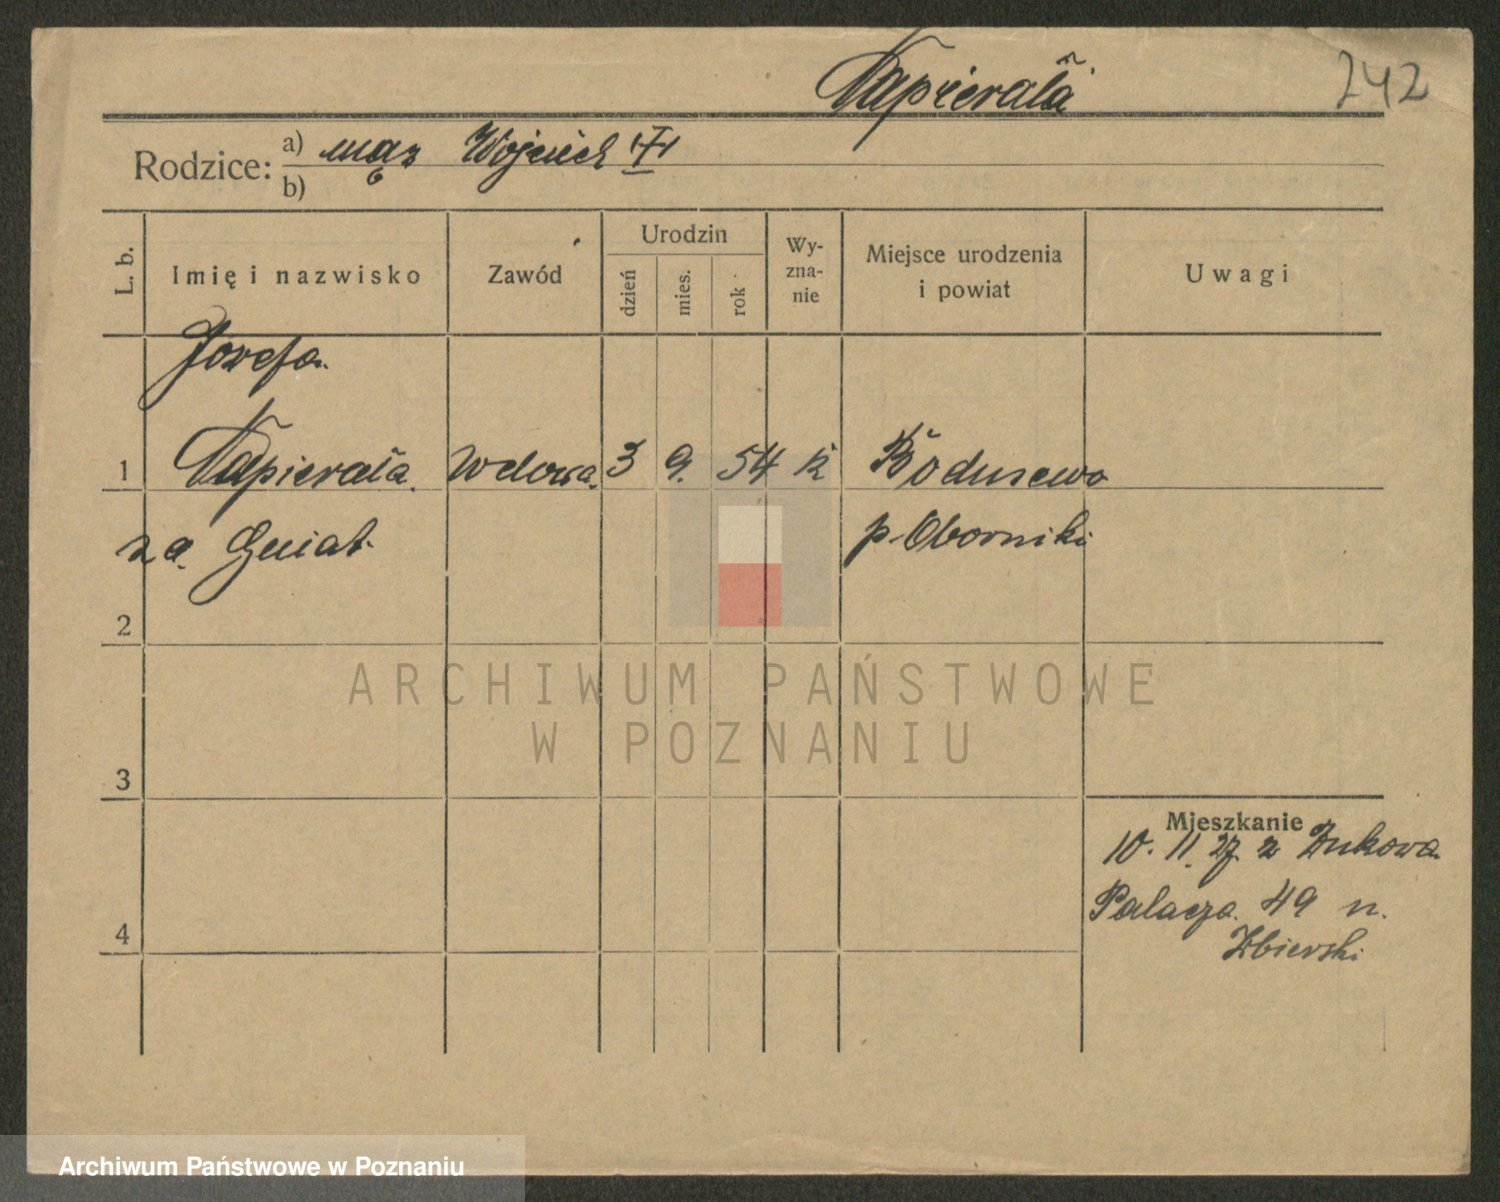 Papierała
242
Rodzice: a) mąż Wojciech
b)
L. b.
Imię i nazwisko
Zawód
Urodzin
dzień
mies.
rok
Wy-
zna-
nie
Miejsce urodzenia
i powiat
Uwagi
Józefa
1 Papierała wdowa 3 9. 54 k Boduszewo
z d. Gniat. p. Oborniki
2
ARCHIWUM PAŃSTWOWE
W POZNANIU
3
Mieszkanie
10. 11. 27. z Żukowa
4 Palacza 49 n.
Zbierski
Archiwum Państwowe w Poznaniu